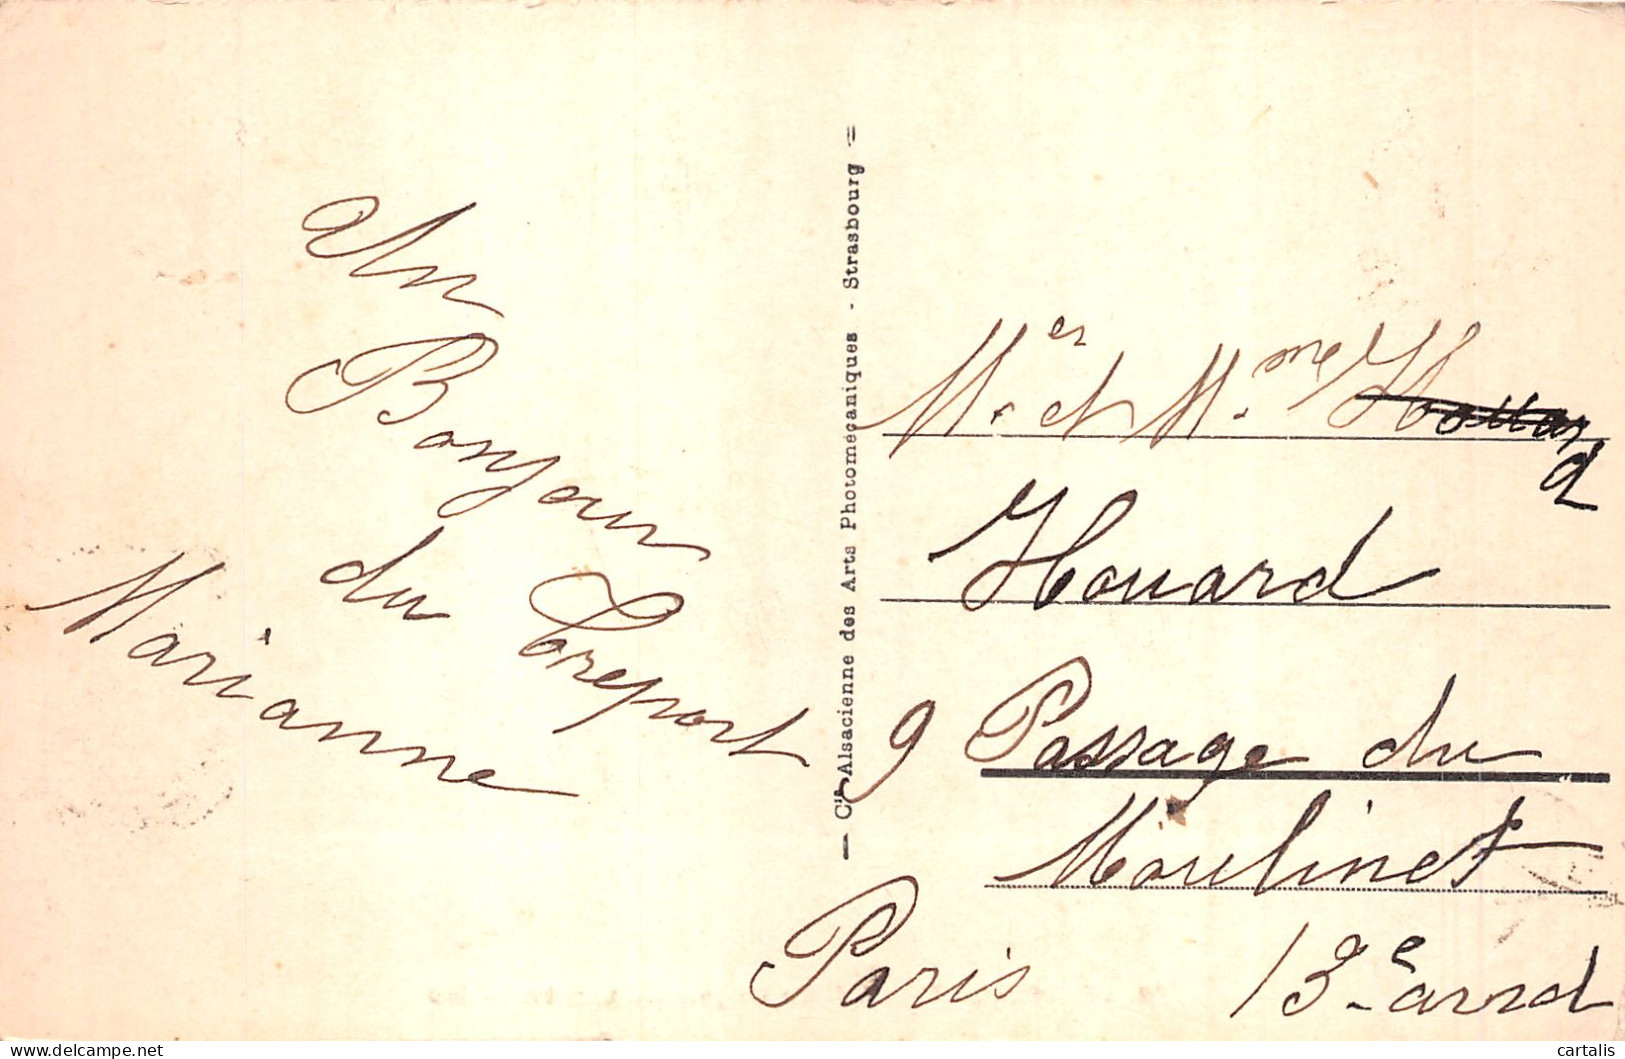 Un
Bonjour
du Corepont
Marianne
— Cie Alsacienne des Arts Photomécaniques - Strasbourg =
Mer et M.me
Houard
9 Passage du
Moulinet
Paris 13e arrd
cartalis